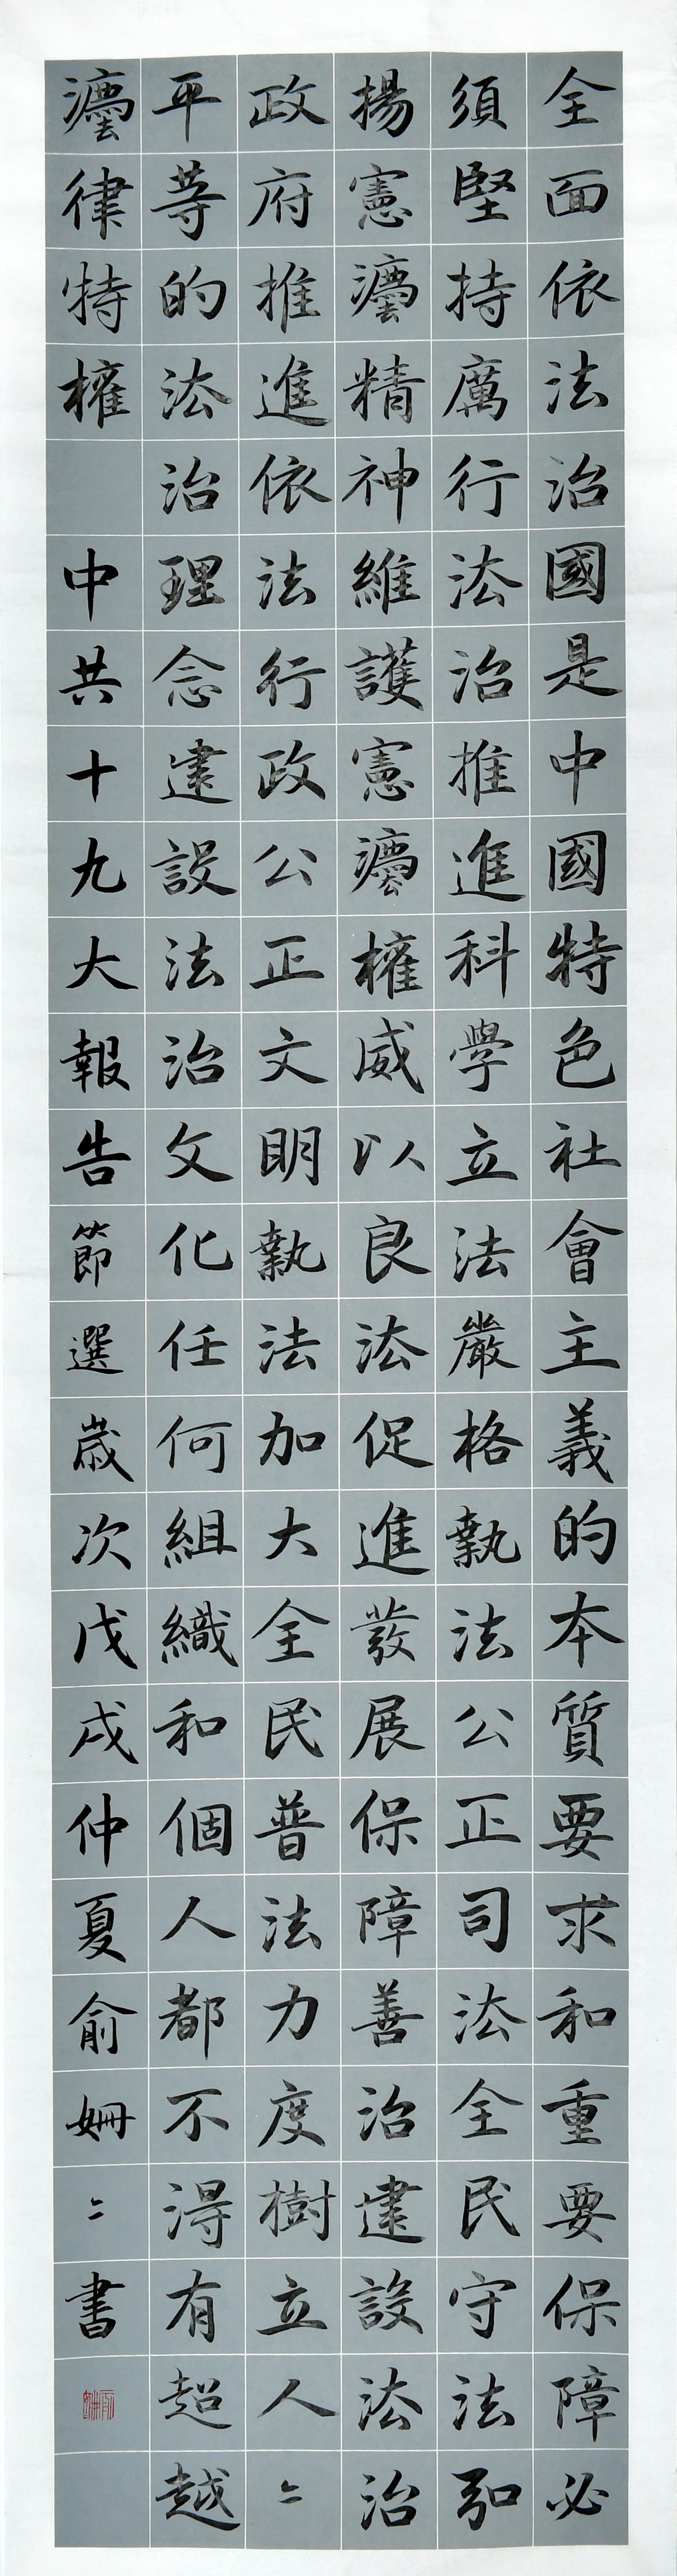 全面依法治國是中國特色社會主義的本質要求和重要保障必
須堅持厲行法治推進科學立法嚴格執法公正司法全民守法弘
揚憲灋精神維護憲灋權威以良法促進發展保障善治建設法治
政府推進依法行政公正文明執法加大全民普法力度樹立人〻
平等的法治理念建設法治文化任何組織和個人都不得有超越
灋律特權 中共十九大報告節選歲次戊戌仲夏俞姍〻書